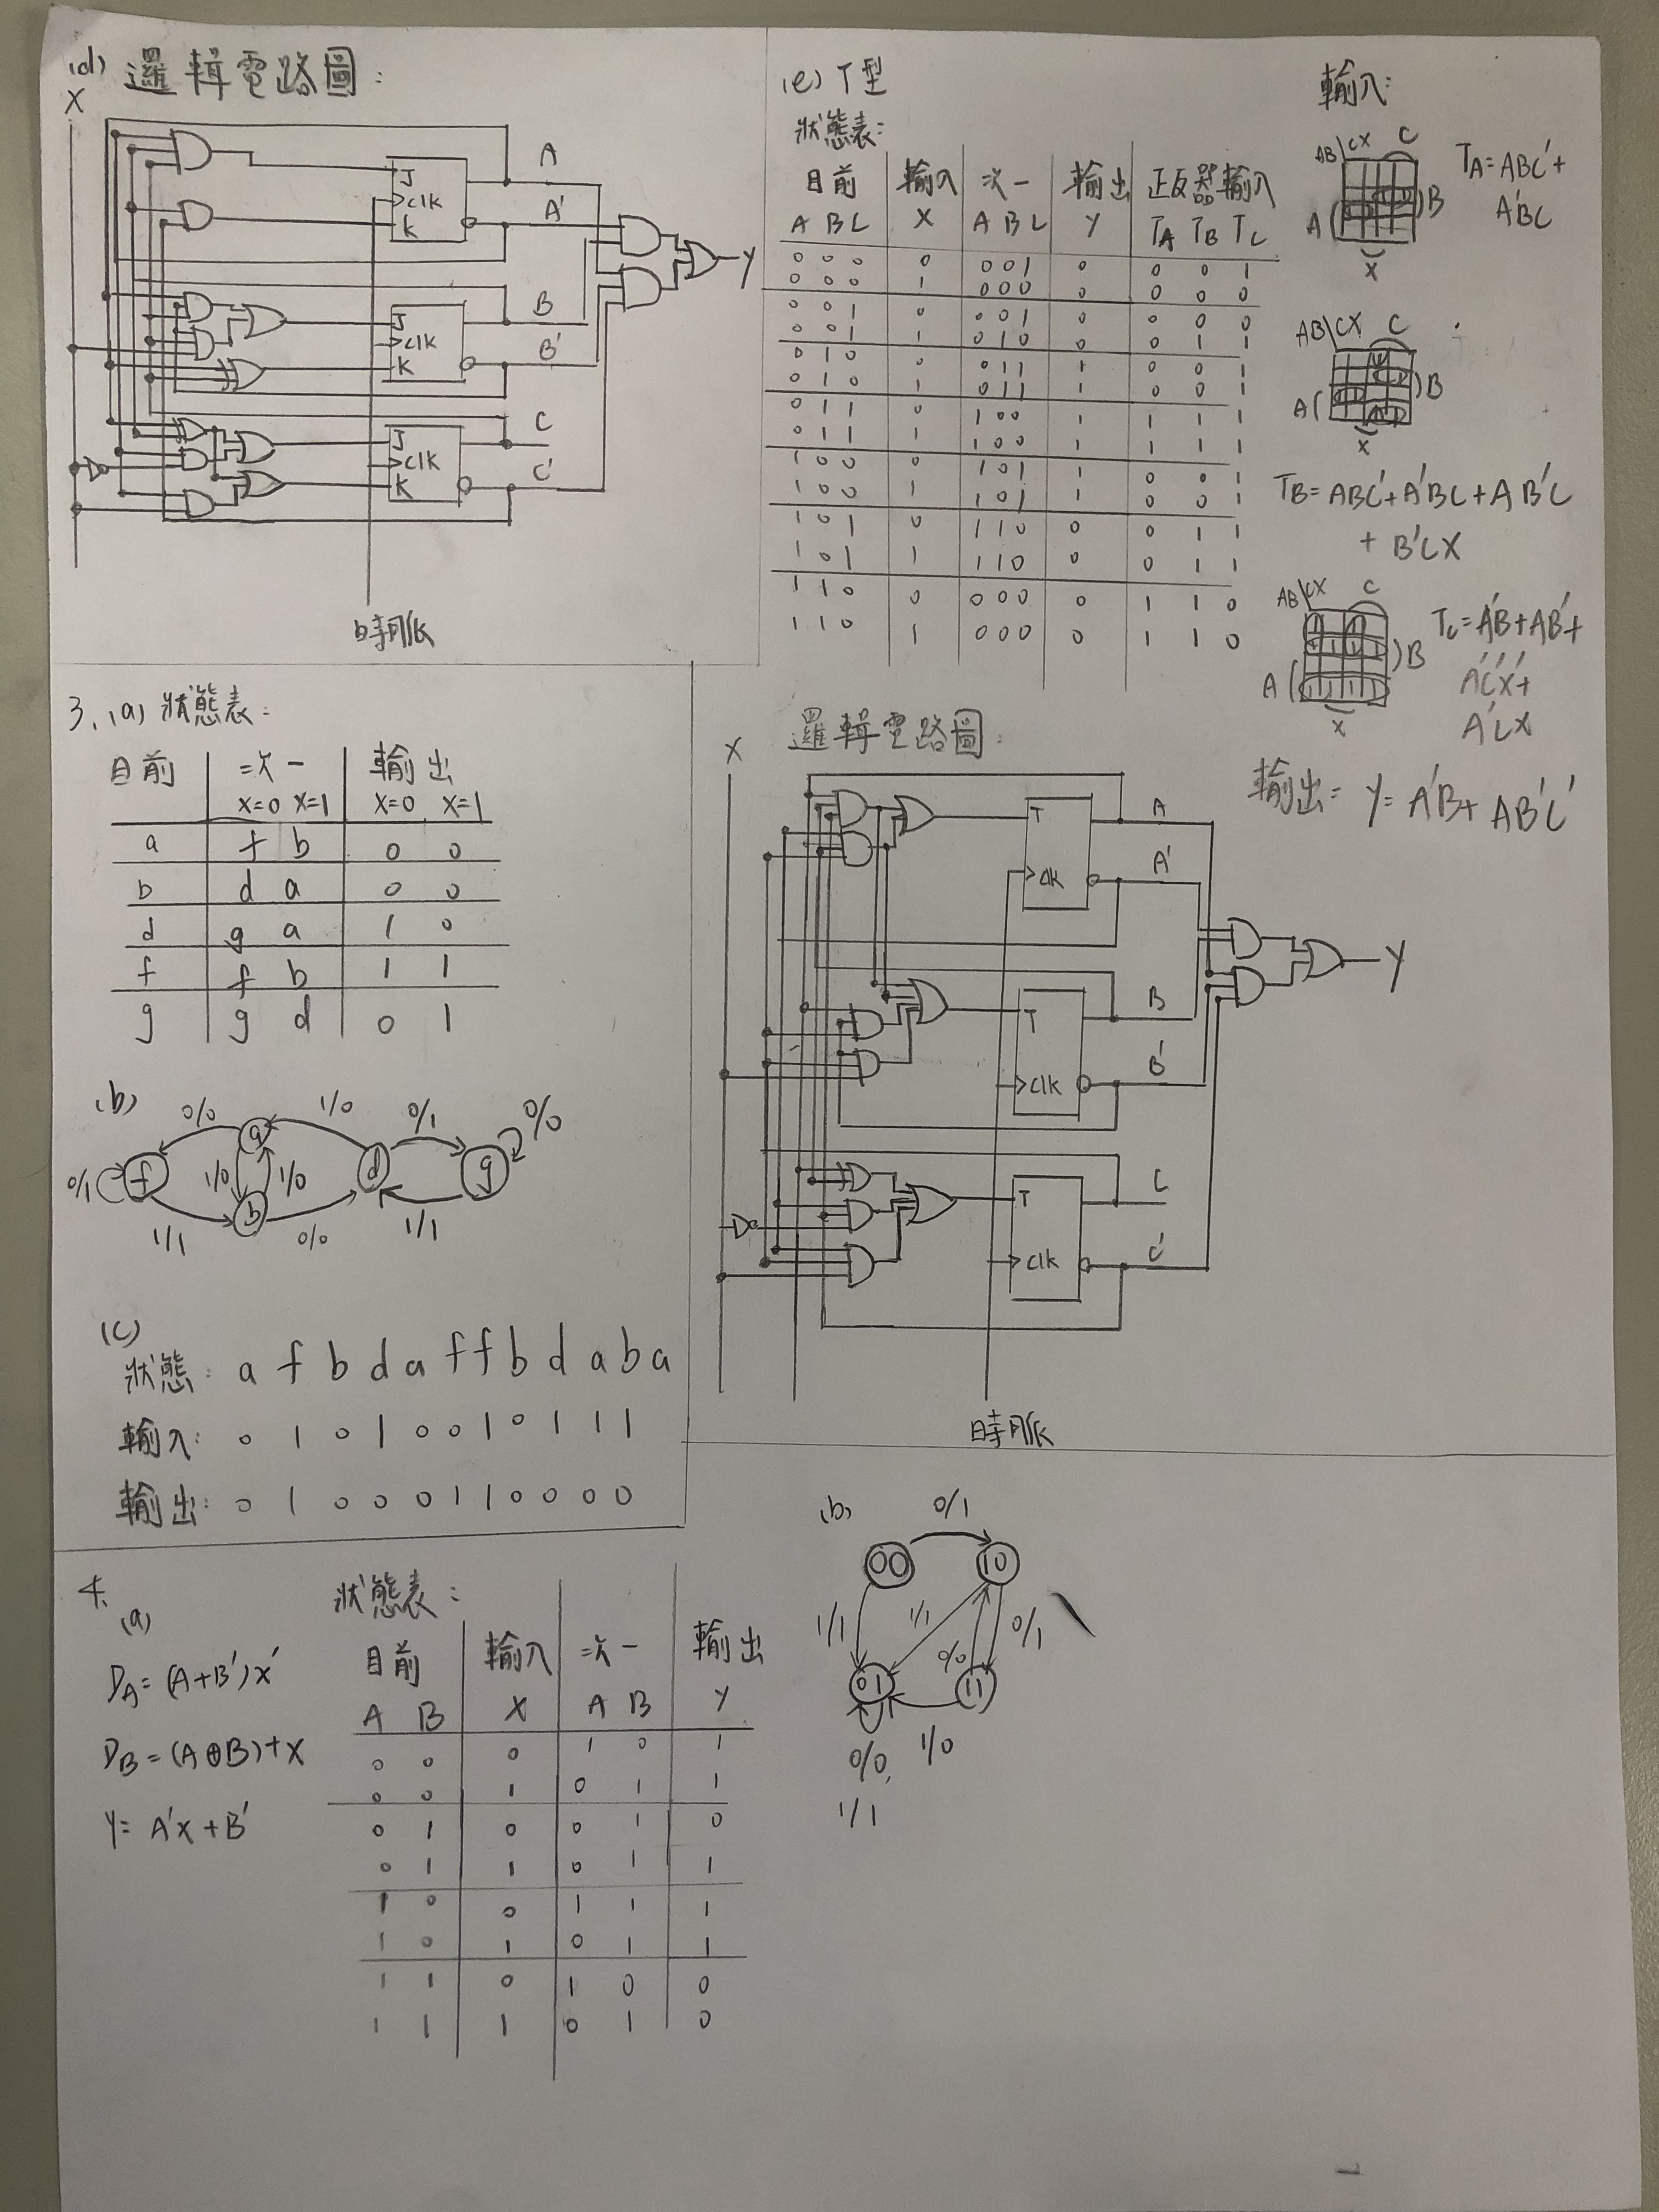 (d) 邏輯電路圖:
X
J
clk
K
A
A'
J
clk
K
B
B'
J
clk
K
C
C'
Y
時脈
(e) T型
狀態表:
目前 輸入 次一 輸出 正反器輸入
A B C X A B C Y TA TB TC
0 0 0 0 0 0 1 0 0 0 1
0 0 0 1 0 0 0 0 0 0 0
0 0 1 0 0 0 1 0 0 0 0
0 0 1 1 0 1 0 0 0 1 1
0 1 0 0 0 1 1 1 0 0 1
0 1 0 1 0 1 1 1 0 0 1
0 1 1 0 1 0 0 1 1 1 1
0 1 1 1 1 0 0 1 1 1 1
1 0 0 0 1 0 1 1 0 0 1
1 0 0 1 1 0 1 1 0 0 1
1 0 1 0 1 1 0 0 0 1 1
1 0 1 1 1 1 0 0 0 1 1
1 1 0 0 0 0 0 0 1 1 0
1 1 0 1 0 0 0 0 1 1 0
輸入:
AB\CX C
A B
X
TA=ABC'+
A'BC
AB\CX C
A B
X
TB=ABC'+A'BC+AB'C
+B'CX
AB\CX C
A B
X
TC=A'B+AB'+
A'C'X'+
A'CX
輸出= Y=A'B+AB'C'
邏輯電路圖:
X
T
clk
A
A'
T
clk
B
B'
T
clk
C
C'
Y
時脈
3. (a) 狀態表:
目前 次一 輸出
x=0 x=1 x=0 x=1
a f b 0 0
b d a 0 0
d g a 1 0
f f b 1 1
g g d 0 1
(b)
0/0 1/0 0/1 0/0
a
0/1 f 1/0 1/0 d g
b
1/1 0/0 1/1
(c)
狀態: a f b d a f f b d a b a
輸入: 0 1 0 1 0 0 1 0 1 1 1
輸出: 0 1 0 0 0 1 1 0 0 0 0
4.
(a)
DA=(A+B')x'
DB=(A⊕B)+x
Y=A'x+B'
狀態表:
目前 輸入 次一 輸出
A B X A B Y
0 0 0 1 0 1
0 0 1 0 1 1
0 1 0 0 1 0
0 1 1 0 1 1
1 0 0 1 1 1
1 0 1 0 1 1
1 1 0 1 0 0
1 1 1 0 1 0
(b)
0/1
00 10
1/1 1/1 0/0 0/1
01 11
0/0, 1/0
1/1